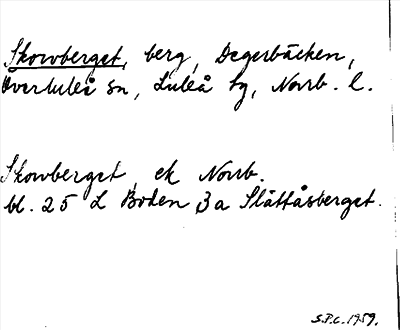 Skowberget, berg, Degerbäcken,
Överluleå sn, Luleå tg, Norrb. l.
Skowberget, ek Norrb.
bl. 25 L Boden, 3a Slättåsberget.
S.P.C. 1959.